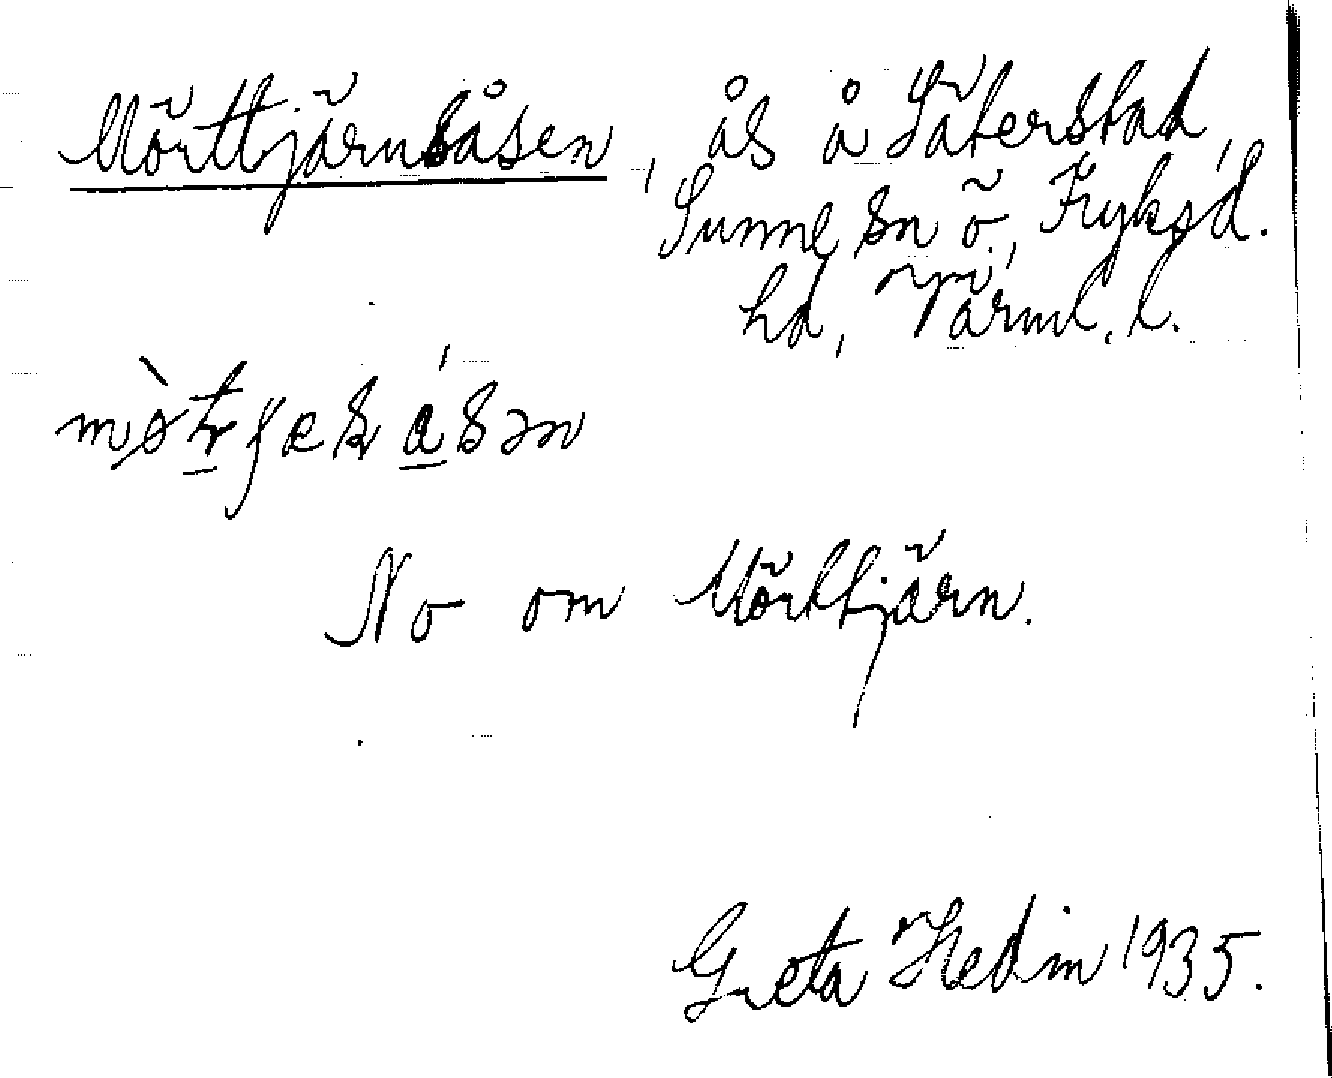 Mörttjärnsåsen, ås å Säterstad,
Sunne sn ö., Fryksd.
hd, Värml. l.
No om Mörttjärn.
Greta Hedin 1935.